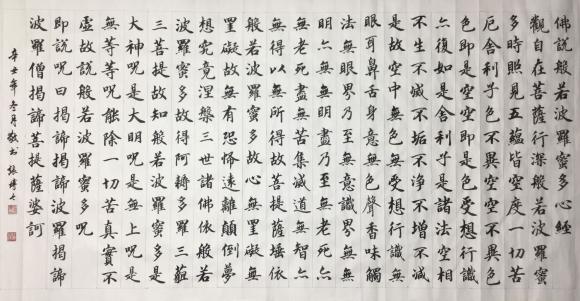 佛說般若波羅蜜多心經
觀自在菩薩行深般若波羅蜜
多時照見五蘊皆空度一切苦
厄舍利子色不異空空不異色
色即是空空即是色受想行識
亦復如是舍利子是諸法空相
不生不滅不垢不淨不增不減
是故空中無色無受想行識無
眼耳鼻舌身意無色聲香味觸
法無眼界乃至無意識界無無
明亦無無明盡乃至無老死亦
無老死盡無苦集滅道無智亦
無得以無所得故菩提薩埵依
般若波羅蜜多故心無罣礙無
罣礙故無有恐怖遠離顛倒夢
想究竟涅槃三世諸佛依般若
波羅蜜多故得阿耨多羅三藐
三菩提故知般若波羅蜜多是
大神呪是大明呪是無上呪是
無等等呪能除一切苦真實不
虛故說般若波羅蜜多呪
即說呪曰揭諦揭諦波羅揭諦
波羅僧揭諦菩提薩婆訶
辛丑年冬月敬書 張